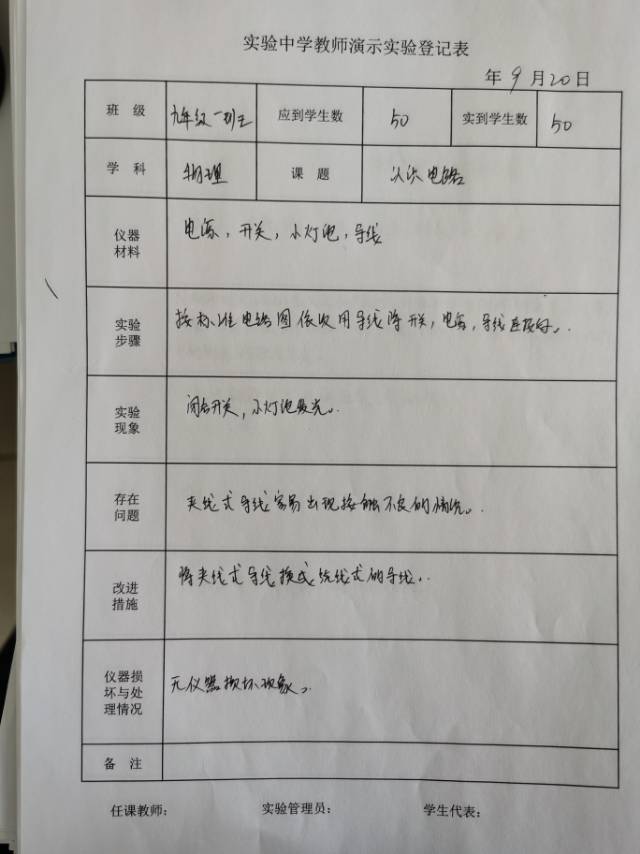 实验中学教师演示实验登记表
年 9 月 20 日
班 级 九年级一班 应到学生数 50 实到学生数 50
学 科 物理 课 题 认识电路
仪器材料 电源，开关，小灯泡，导线
实验步骤 按标准电路图依次用导线将开关，电源，导线连接好。
实验现象 闭合开关，小灯泡发光。
存在问题 夹线式导线容易出现接触不良的情况。
改进措施 将夹线式导线换成绕线式的导线。
仪器损坏与处理情况 无仪器损坏现象。
备 注
任课教师： 实验管理员： 学生代表：